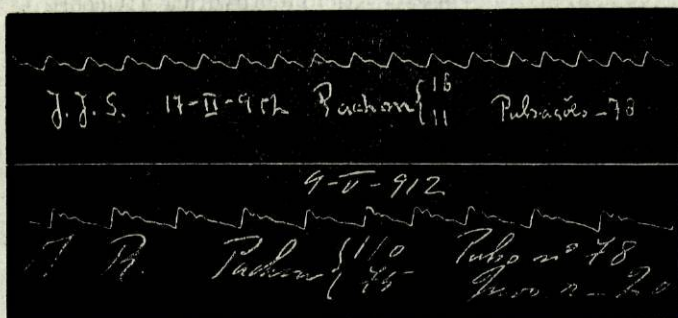 J. J. S. 17-II-912 Pachon { 16 11 Pulsações - 78
9-V-912
R. Pachon { 110 75 Pulso nº 78